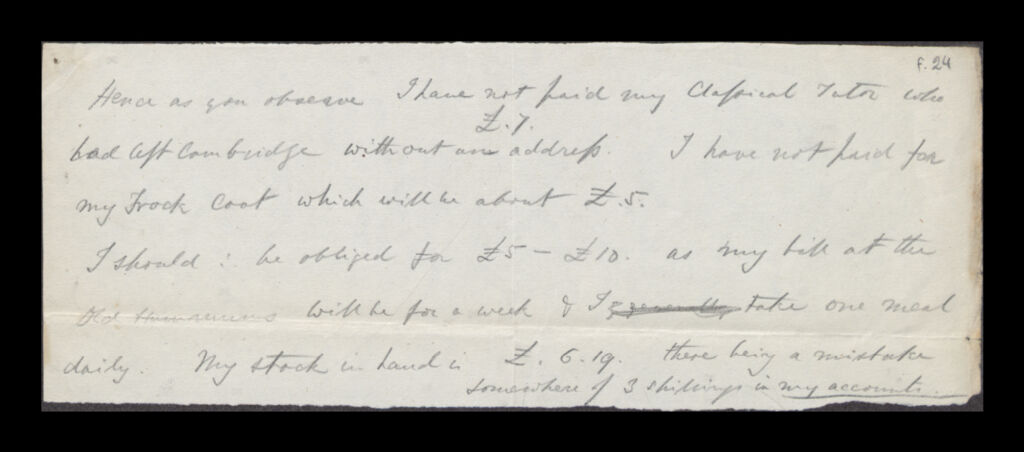 F. 24
Hence as you observe I have not paid my Classical Tutor who
£.7.
had left Cambridge without an address. I have not paid for
my Frock Coat which will be about £.5.
I should ∴ be obliged for £5 – £10. as my bill at the
Old Hummums will be for a week & I take one meal
daily. My stock in hand is £. 6.19. there being a mistake
somewhere of 3 shillings in my accounts.